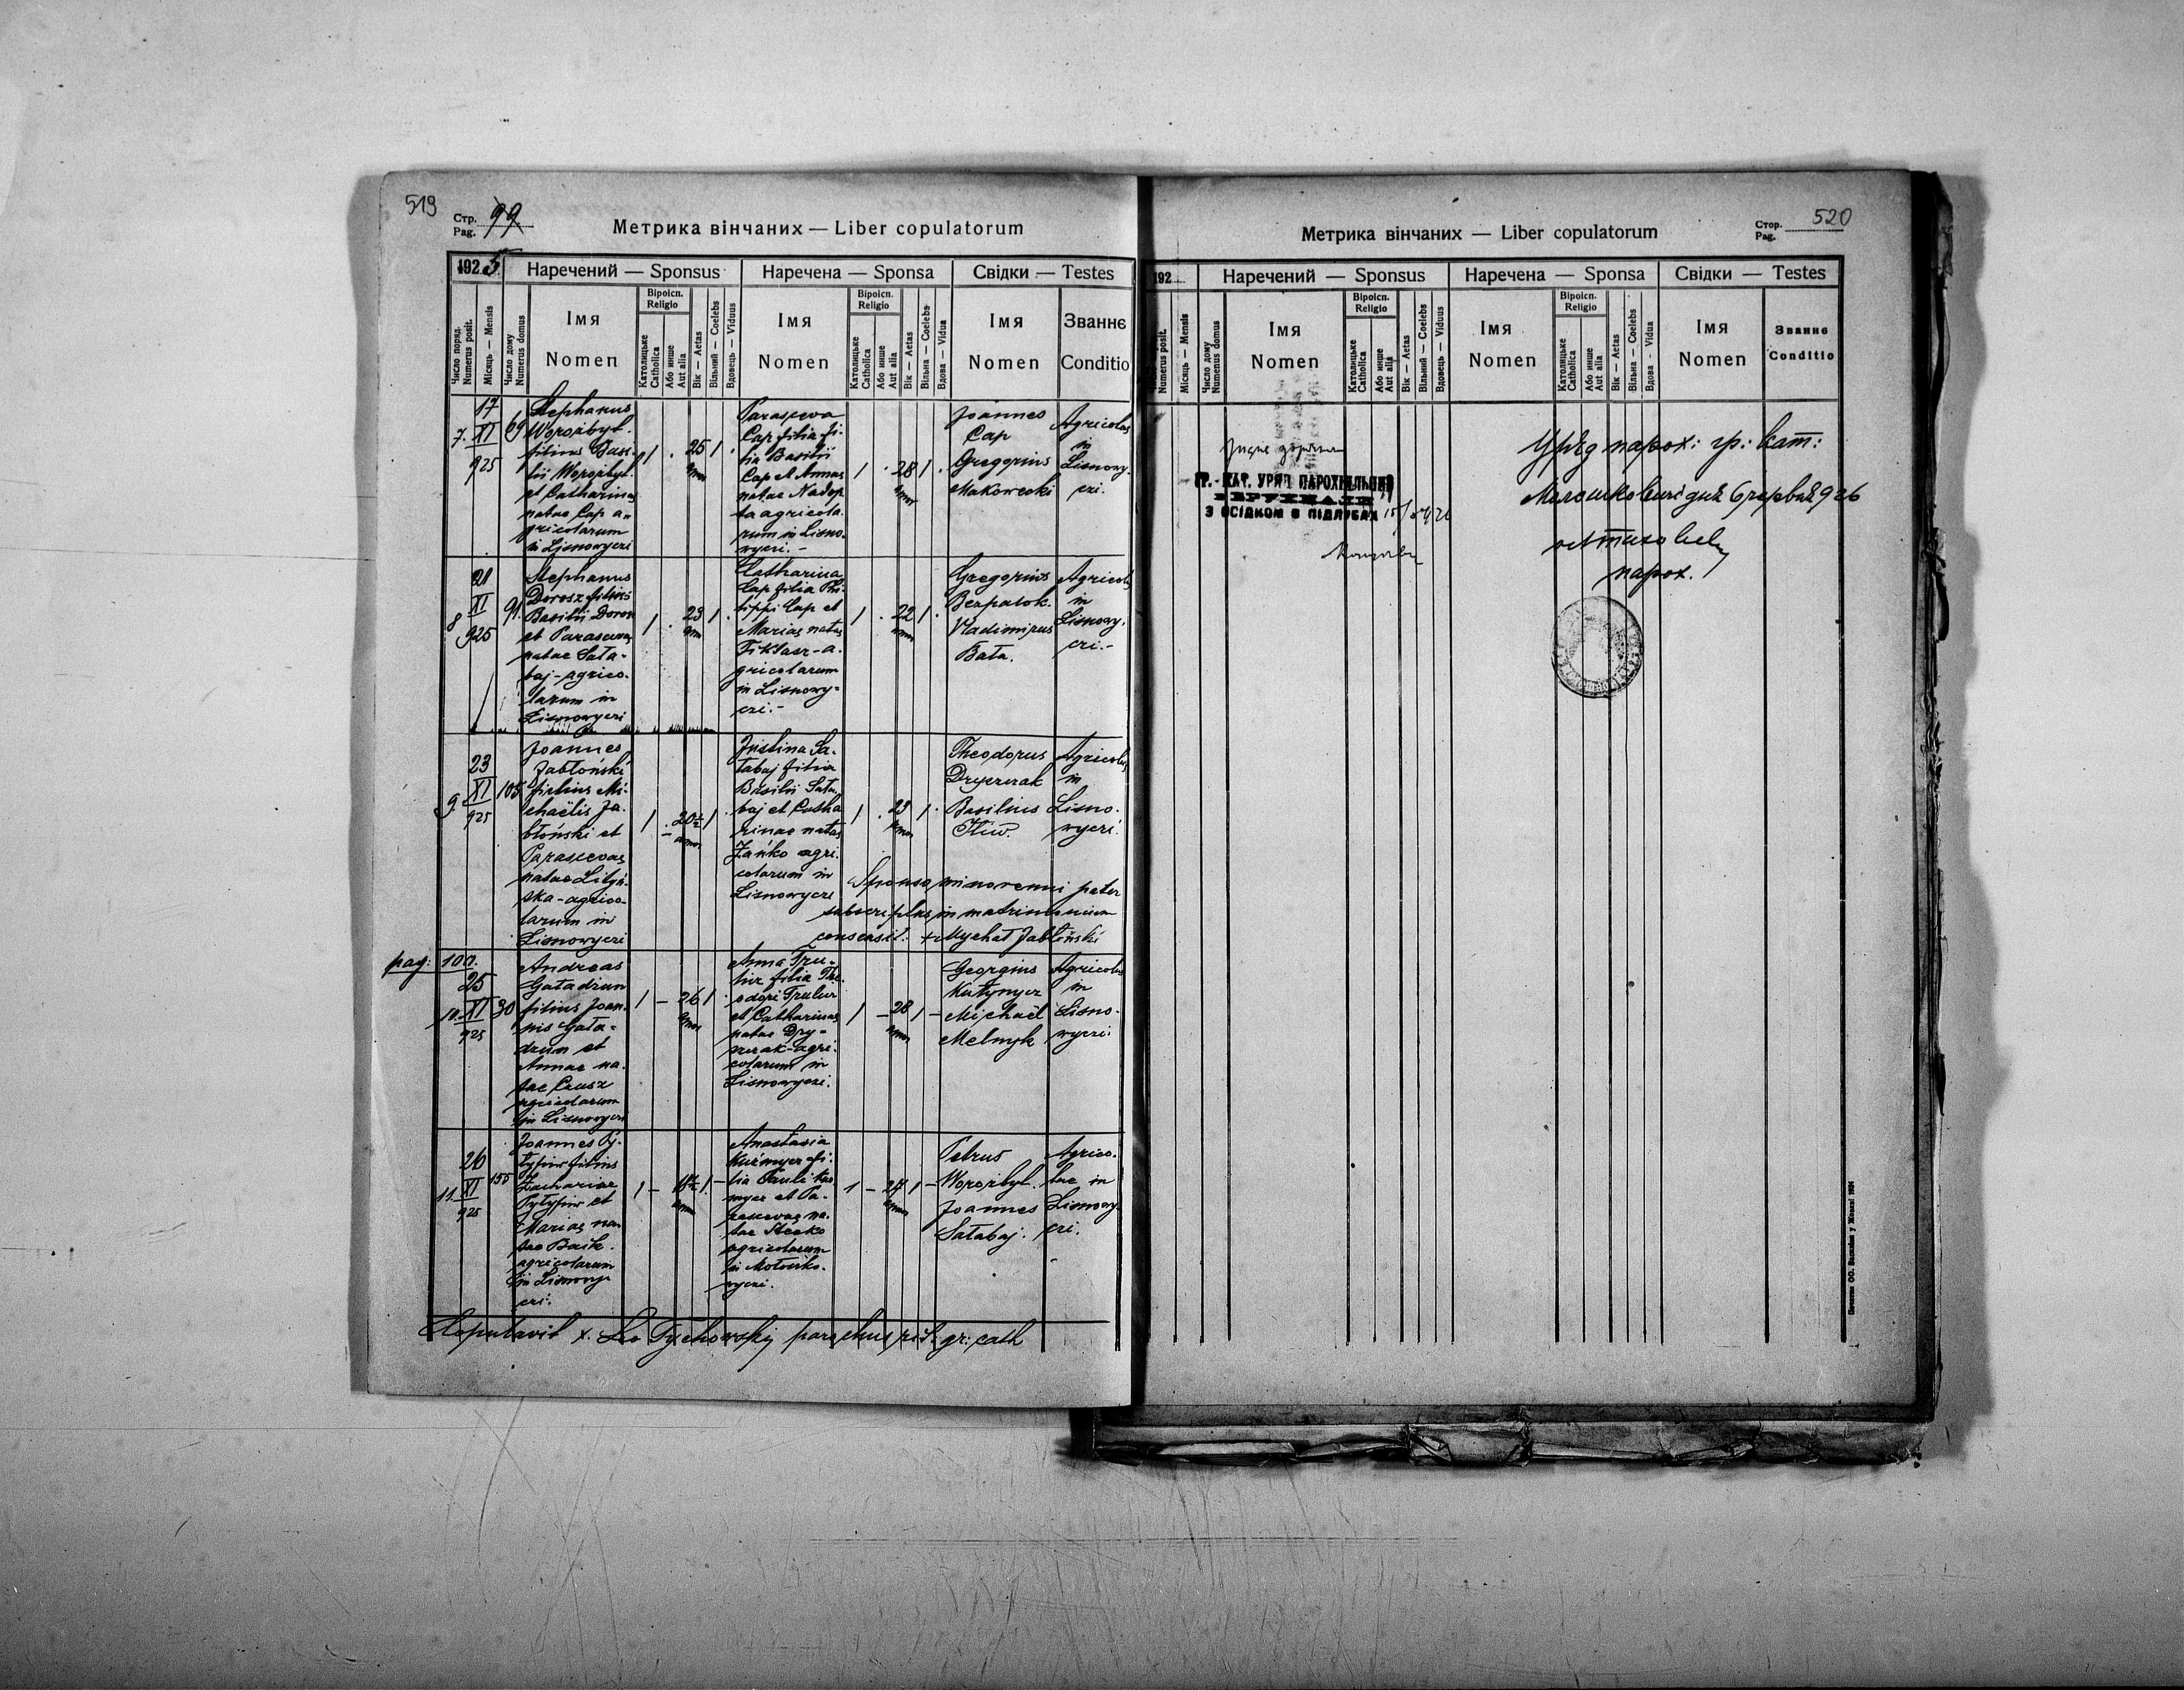 519
Стр. 99
Pag.
Метрика вінчаних — Liber copulatorum
1925
Наречений — Sponsus
Наречена — Sponsa
Свідки — Testes
Число поряд.
Numerus posit.
Місяць — Mensis
Число дому
Numerus domus
Імя
Nomen
Віроісп.
Religio
Католицьке
Catholica
Або инше
Aut alia
Вік — Aetas
Вільний — Coelebs
Вдовець — Viduus
Імя
Nomen
Віроісп.
Religio
Католицьке
Catholica
Або инше
Aut alia
Вік — Aetas
Вільна — Coelebs
Вдова — Vidua
Імя
Nomen
Званнє
Conditio
7.
17
XI
925
69
Stephanus
Worožbyt.
filius Basi-
lii Worožbyt.
et Catharinae
natae Cap a-
gricolarum
in Lisnowyczi
1 . 25 1 .
Parasceva
Cap filia fi-
lia Basilii
Cap et Annae
natae
agricola-
rum in Lisno-
wyczi. -
1 . 28 1 .
Joannes
Cap
Gregorius
Makowecki
Agricolae
in
Lisnowy-
czi.
8
21
XI
925
91.
Stephanus
Dorosz filius
Basilii Dorosz
et Parascevae
natae Sała-
baj - agrico-
larum in
Lisnowyczi
1 . 23 1 .
Catharina
Cap filia Phi-
lippi Cap et
Mariae natae
Fiktasz - a-
gricolarum
in Lisnowy-
czi. -
1 . 22 1 .
Gregorius
Bezpalok.
Vladimirus
Bała.
Agricolae
in
Lisnowy-
czi. -
9.
23
XI
925
105
Joannes
Jabłoński
filius Mi-
chaëlis Ja-
błoński et
Parascevae
natae Lityń-
ska - agrico-
larum in
Lisnowyczi
1 - 20½ 1 .
Justina Sa-
łabaj filia
Basilii Sała-
baj et Catha-
rinae natae
Żańko agri-
colarum in
Lisnowyczi
1 . 23 1 .
Theodorus
Dryszczak
Basilius
Iliw.
Agricolae
in
Lisno-
wyczi.
Sponso minorenni pater
subscriptus in matrimonium
consensit: + Mychał Jabłoński
pag: 100.
10.
25
XI
925
30
Andreas
Gaładzun
filius Joan-
nis Gała-
dzun et
Annae na-
tae Czusz
agricolarum
in Lisnowyczi
1 — 26 1 .
Anna Tru-
lur filia The-
odori Trulur
et Catharinae
natae Dry-
szczak - agri-
colarum in
Lisnowyczi.
1 — 28 1 —
Georgius
Kułynycz
Michaël
Melnyk
Agricolae
in
Lisno-
wyczi
11.
26
XI
925
155
Joannes Py-
tyfiw filius
Zachariae
Pytyfiw et
Mariae na-
tae Baik.
agricolarum
in Lisnowy-
czi.
1 — 1 .
Anastasia
Kuśmycz fi-
lia Pauli Kuś-
mycz et Pa-
rascevae na-
tae Stecko
agricolarum
in Mołoszko-
wyczi.
1 — 24 1 —
Petrus
Worożbyt.
Joannes
Sałabaj.
Agrico-
lae in
Lisnowy-
czi.
Copulavit x. Leo Tychowskyj parochus rit. gr: cath
520
Стор.
Pag.
Метрика вінчаних — Liber copulatorum
192
Наречений — Sponsus
Наречена — Sponsa
Свідки — Testes
Numerus posit.
Місяць — Mensis
Число дому
Numerus domus
Імя
Nomen
Віроісп.
Religio
Католицьке
Catholica
Або инше
Aut alia
Вік — Aetas
Вільний — Coelebs
Вдовець — Viduus
Імя
Nomen
Віроісп.
Religio
Католицьке
Catholica
Або инше
Aut alia
Вік — Aetas
Вільна — Coelebs
Вдова - Vidua
Імя
Nomen
Званнє
Conditio
ГР.-КАТ. УРЯД ПАРОХІЯЛЬНИЙ
З ОСІДКОМ В ПІДЛУБАХ
Уряд парох: гр: кат:
926
парох.